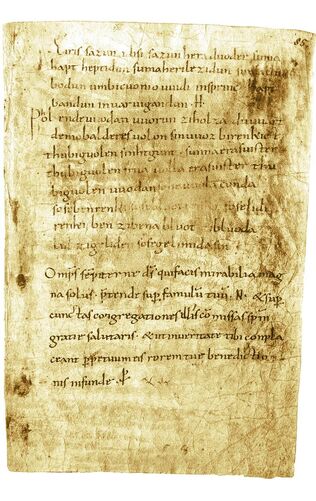 85
Eiris sazun idisi sazun hera duoder suma
hapt heptidun sumaherilezidun sumaclu
bodun umbicuonio uuidi insprinc hapt
bandun inuar uigandun· H·
Phol endeuuodan uuorun ziholza du uuart
demobalderes uolon sinuuoz birenkict
thubiguolen sinhtgunt· sunnaerasuister
thubiguolen friia uolla erasuister thu
biguolen uuodan sohe uuolaconda
sosebenrenki soselidi
renki ben zibena bluot zibluoda
lid zigeliden sosegelimida sin
Omps sēpiterne ds̄ qui facis mirabilia mag
na solus p̄tende sup famulū tuū· N· & sup
cunctas congregationes illis cōmissas spm̄
gratie salutaris· & ut inueritate tibi compla
ceant ppetuum eis rorem tue benedictio
nis infunde· p